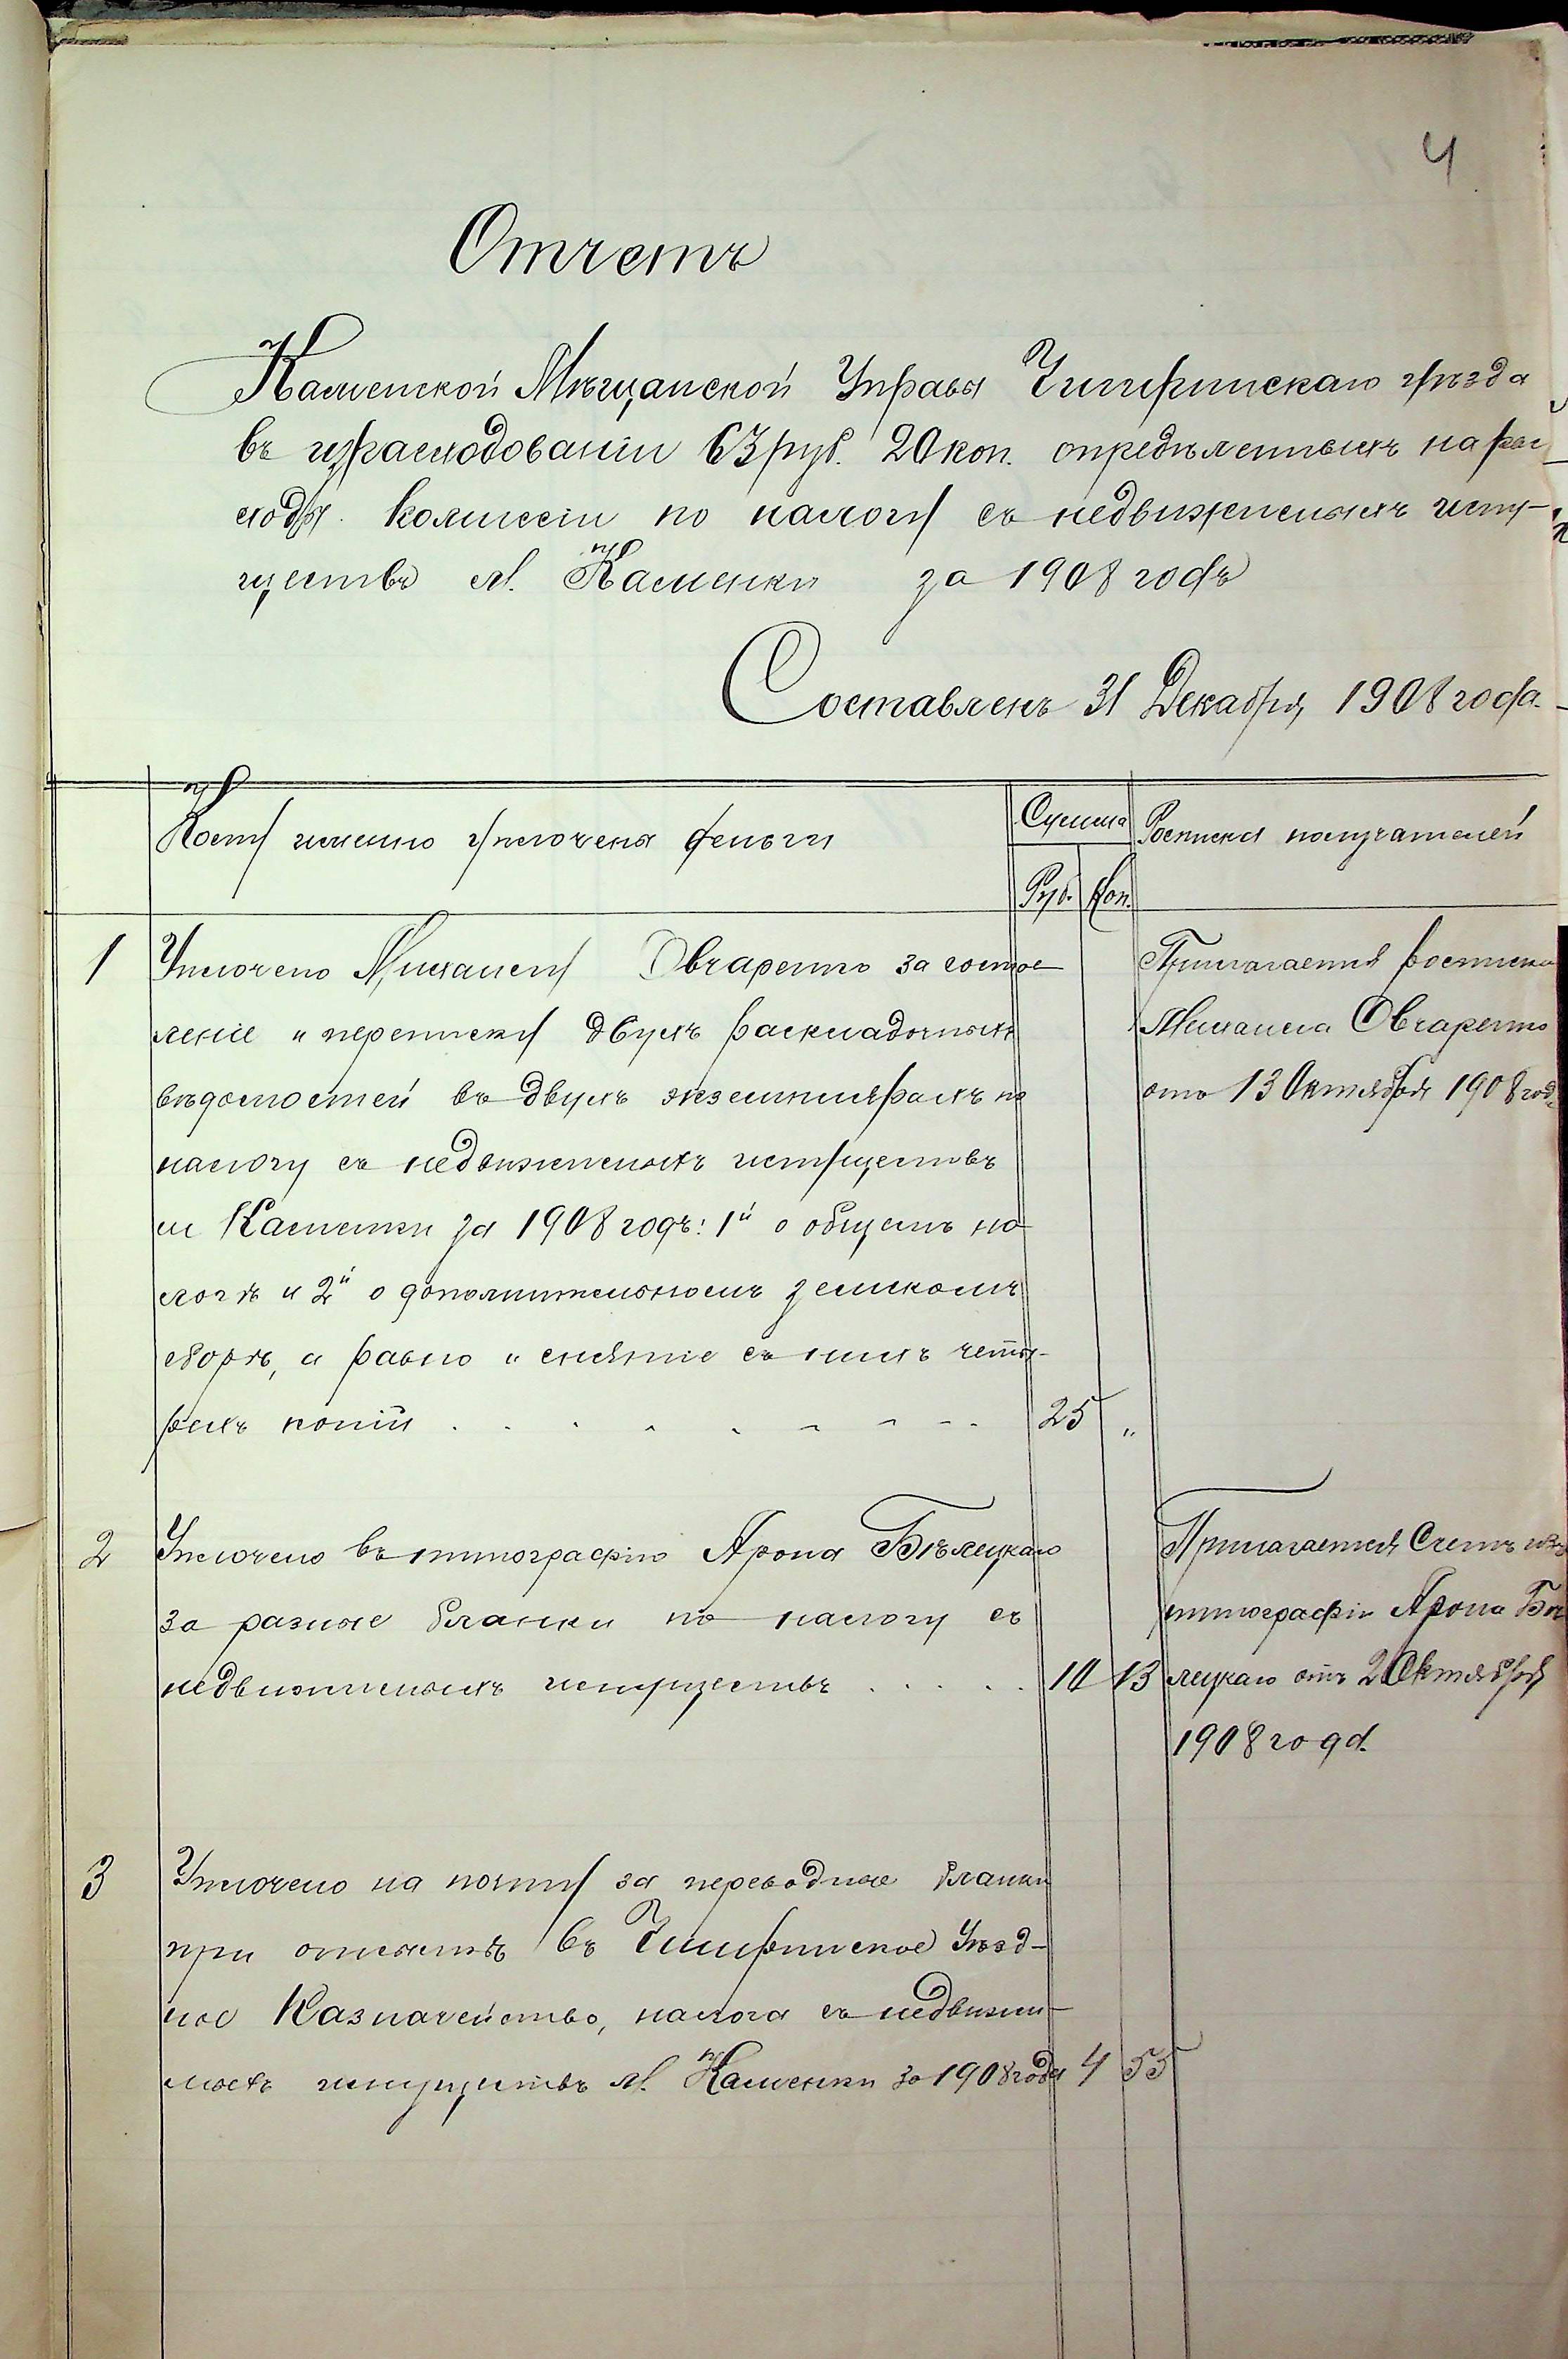 4
Отчетъ
Каменской Мѣщанской Управы Чигиринскаго уѣзда
въ израсходованіи 63 руб. 20 коп. опредѣленныхъ на рас-
ходы комиссіи по налогу съ недвижимыхъ иму-
ществъ м. Каменки за 1908 годъ
Составленъ 31 Декабря 1908 года.
Кому именно уплочены деньги
Сумма
Росписки получателей
Руб. Коп.
1 Уплочено Михаилу Овчаренко за состав
леніе и переписку двухъ раскладочныхъ
вѣдомостей въ двухъ экземплярахъ по
налогу съ недвижимыхъ имуществъ
м Каменки за 1908 годъ: 1й о общемъ на
логѣ и 2й о дополнительномъ земскомъ
сборѣ, а равно и снятіе съ нихъ четы-
рехъ копій . . . . . . . . 25 "
Прилагается росписка
Михаила Овчаренко
отъ 13 Октября 1908 года
2 Уплочено въ типографію Арона Бѣлецкаго
за разные бланки по налогу съ
недвижимыхъ имуществъ . . . . . 10 13
Прилагается Счетъ изъ
типографіи Арона Бѣ
лецкаго отъ 2 Октября
1908 года.
3 Уплочено на почту за переводные бланки
при отсылкѣ въ Чигиринское Уѣзд-
ное Казначейство, налога съ недвижи-
мыхъ имуществъ м. Каменки за 1908 годъ 4 55